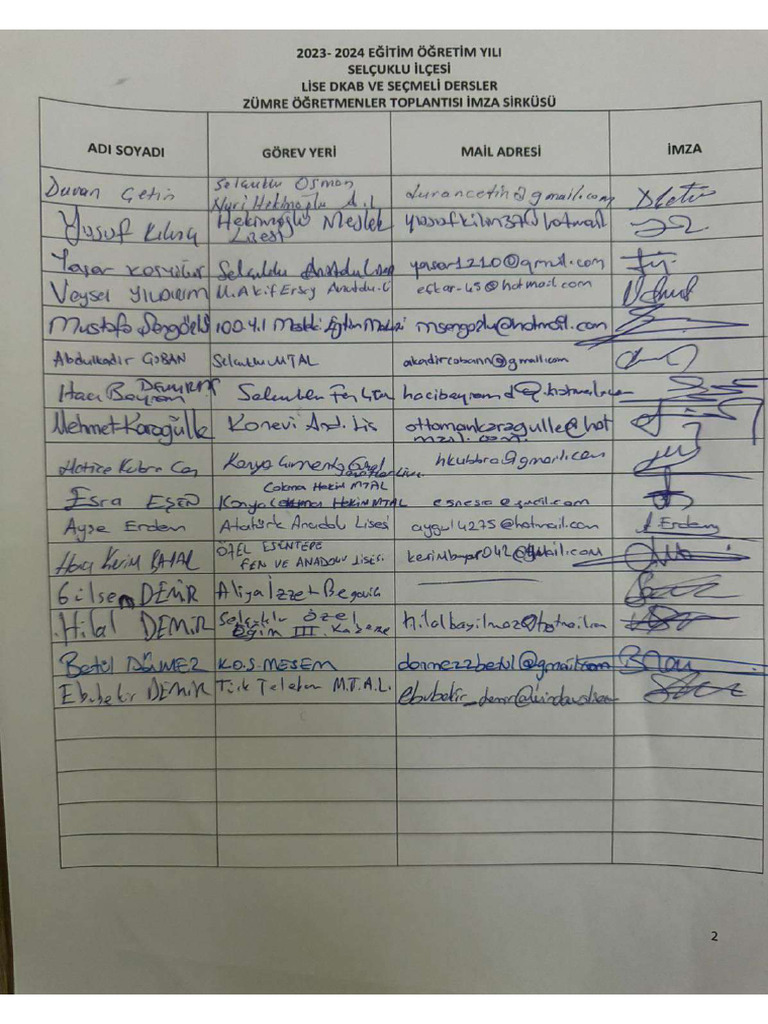 2023- 2024 EĞİTİM ÖĞRETİM YILI
SELÇUKLU İLÇESİ
LİSE DKAB VE SEÇMELİ DERSLER
ZÜMRE ÖĞRETMENLER TOPLANTISI İMZA SİRKÜSÜ
ADI SOYADI GÖREV YERİ MAİL ADRESİ İMZA
Duran Çetin Selçuklu Osman Nuri Hekimoğlu A.L durancetin@gmail.com
Yusuf Kılınç Hekimoğlu Meslek Lisesi
Yaşar Selçuklu Anadolu Lisesi yasar1210@gmail.com
Veysel YILDIRIM M. Akif Ersoy Anadolu L. efkar-45@hotmail.com
Mustafa 100.Y.1 Mesleki Eğitim Merkezi msengozlu@hotmail.com
Abdulkadir ÇOBAN Selçuklu MTAL akadircobann@gmail.com
Hacı Bayram DEMİRAY Selçuklu Fen Lisesi
Mehmet Karagülle Konevi And. Lis ottomankaragulle@hotmail.com
Hatice Kübra Konya hkubbra@gmail.com
Esra EŞEN Konya Çokma Hekim MTAL
Ayşe Erdem Atatürk Anadolu Lisesi aygul4275@hotmail.com A. Erdem
Hacı Kerim ÖZEL ESENTEPE FEN VE ANADOLU LİSESİ.
Gülsen DEMİR Aliya İzzet Begoviç
Hilal DEMİR Selçuklu Özel Eğitim III. Kademe
Betül DÖNMEZ K.O.S. MESEM donmezzbetul@gmail.com
Ebubekir DEMİR Türk Telekom M.T.A.L.
2